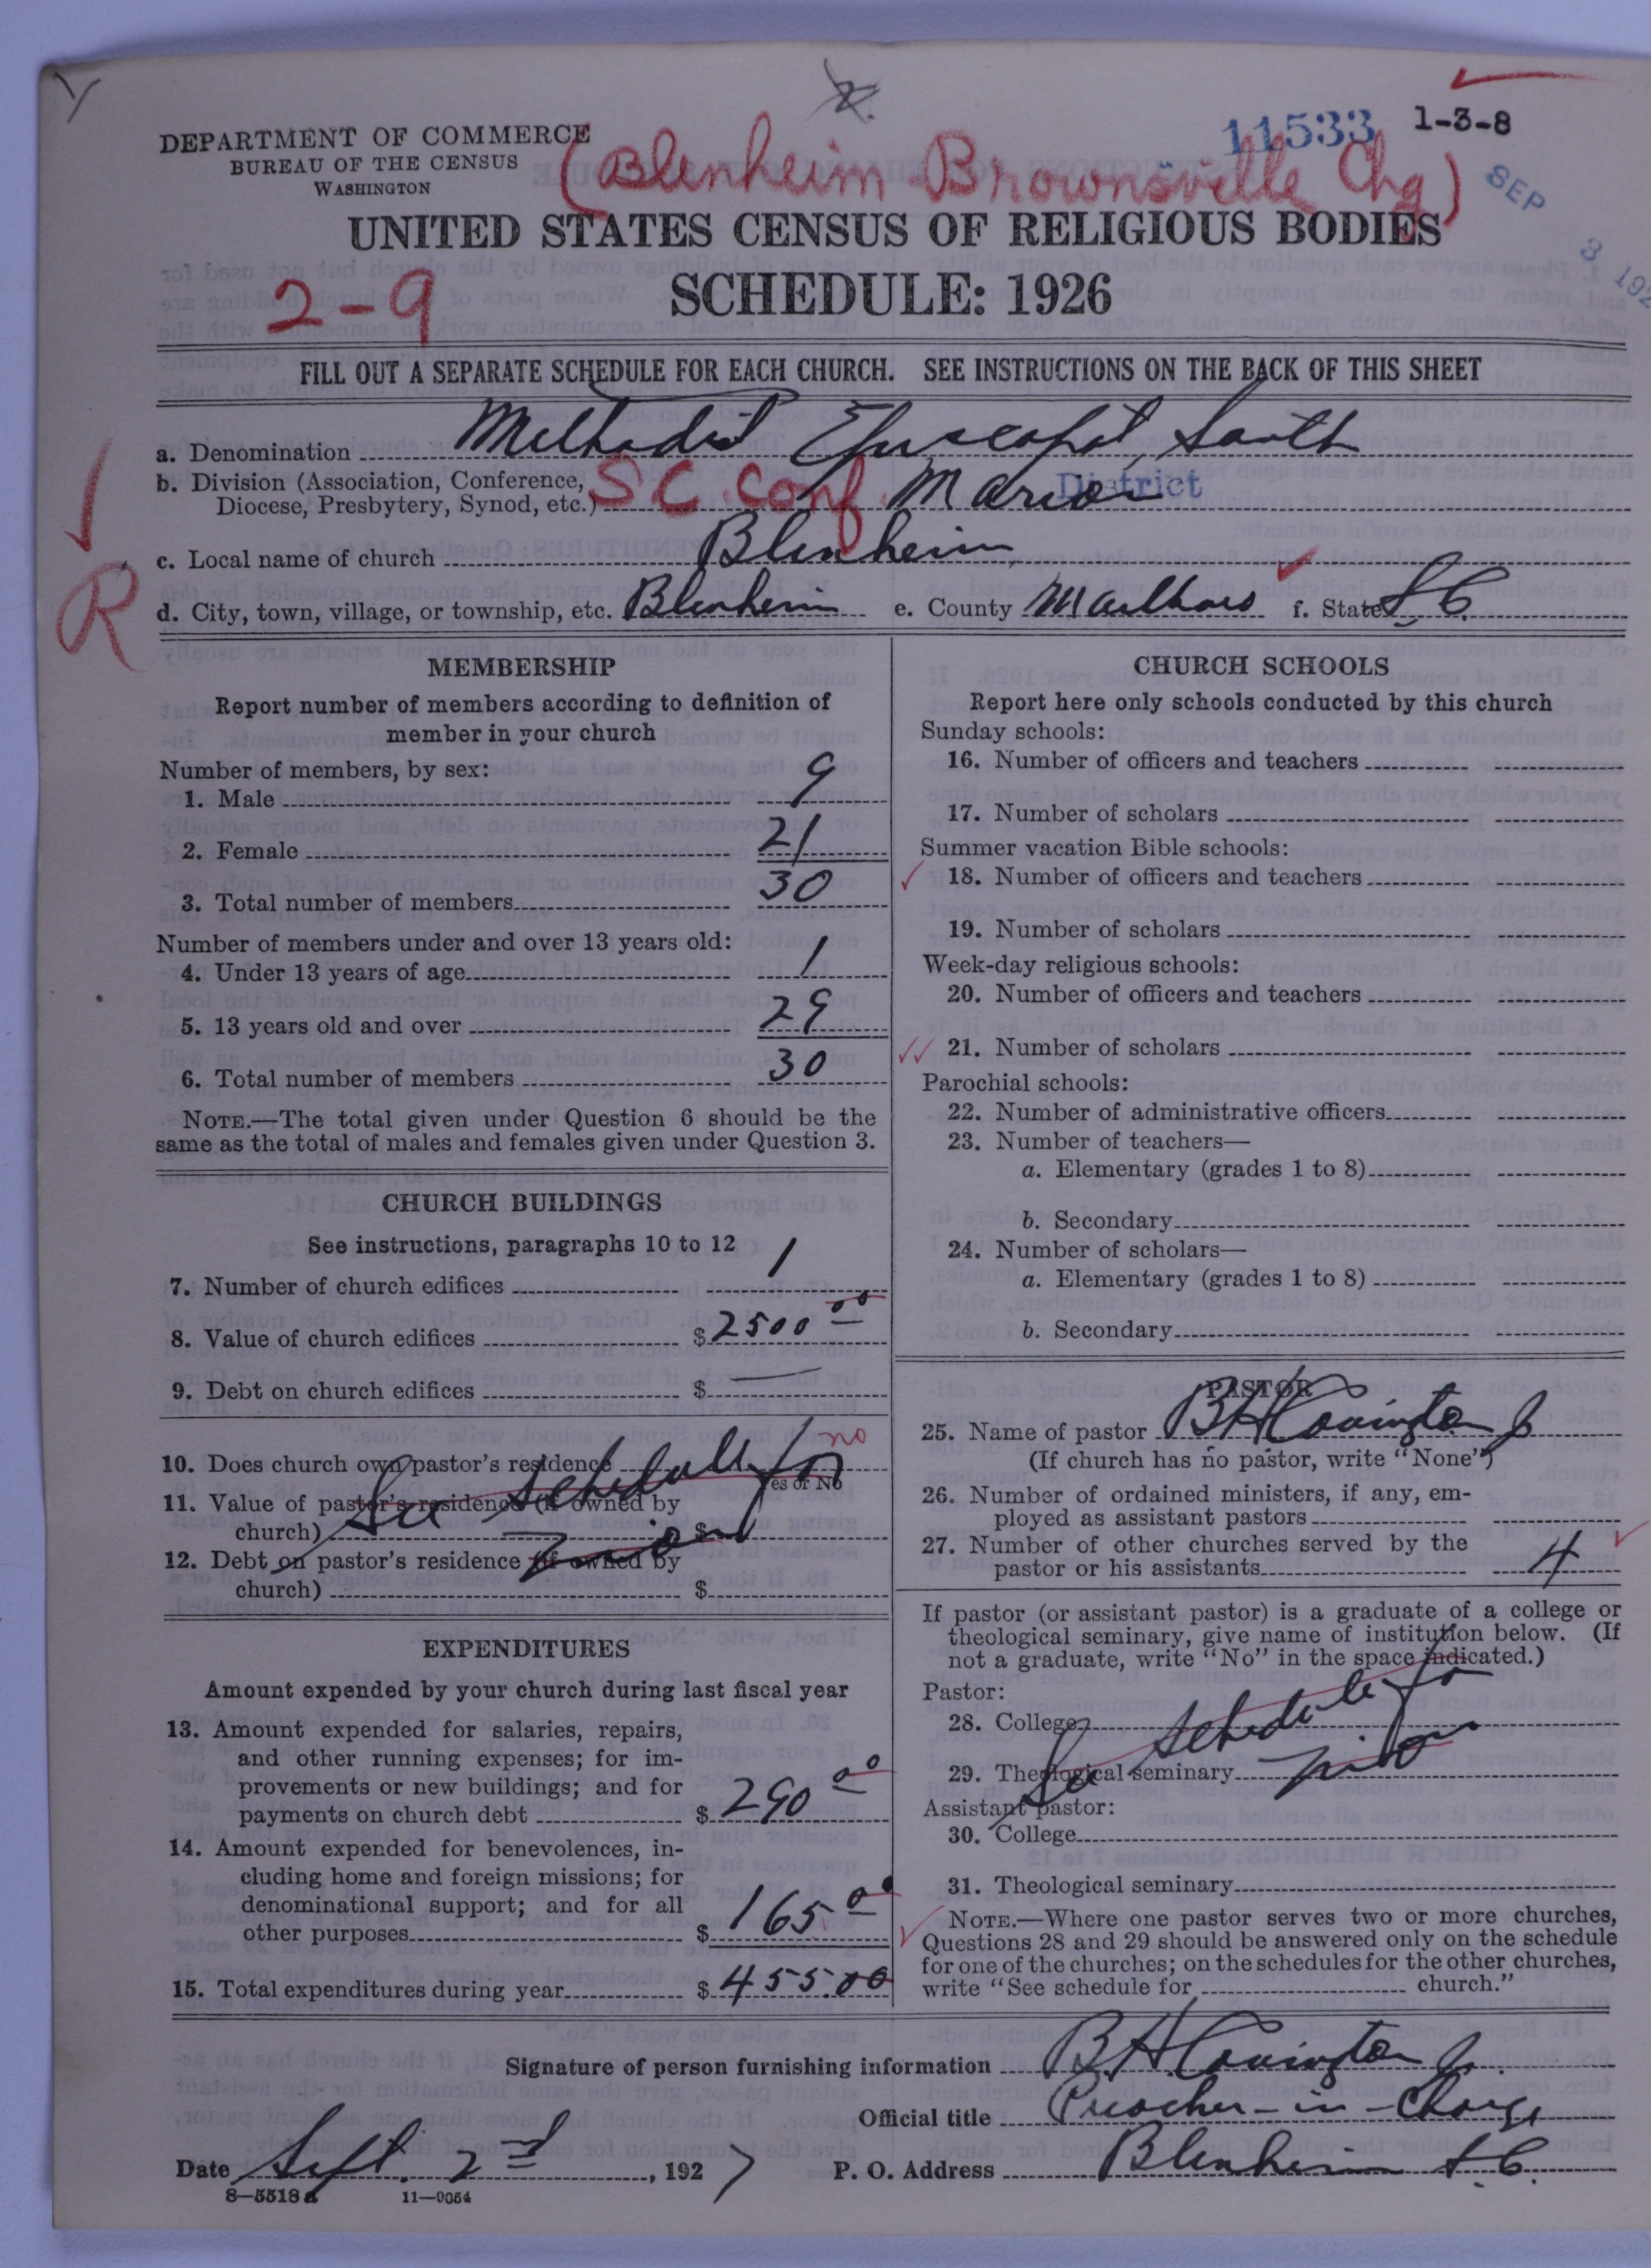 11533
1-3-8
DEPARTMENT OF COMMERCE
BUREAU OF THE CENSUS
WASHINGTON
(Blenheim Brownsville Chg)
SEP 3 192
UNITED STATES CENSUS OF RELIGIOUS BODIES
2-9
SCHEDULE: 1926
FILL OUT A SEPARATE SCHEDULE FOR EACH CHURCH. SEE INSTRUCTIONS ON THE BACK OF THIS SHEET
a. Denomination Methodist Episcopal, South
b. Division (Association, Conference,
Diocese, Presbytery, Synod, etc.) S C Conf. Marion District
c. Local name of church Blenheim
R
d. City, town, village, or township, etc. Blenheim e. County Marlboro f. State S C.
MEMBERSHIP
Report number of members according to definition of
member in your church
Number of members, by sex:
1. Male 9
2. Female 21
3. Total number of members 30
Number of members under and over 13 years old:
4. Under 13 years of age 1
5. 13 years old and over 29
6. Total number of members 30
NOTE.—The total given under Question 6 should be the
same as the total of males and females given under Question 3.
CHURCH BUILDINGS
See instructions, paragraphs 10 to 12
7. Number of church edifices 1
8. Value of church edifices $2500 00
9. Debt on church edifices $ —
10. Does church own pastor's residence no
Yes or No
11. Value of pastor's residence (if owned by
church) $
See schedule for
12. Debt on pastor's residence (if owned by
church) $
EXPENDITURES
Amount expended by your church during last fiscal year
13. Amount expended for salaries, repairs,
and other running expenses; for im-
provements or new buildings; and for
payments on church debt $ 290 00
14. Amount expended for benevolences, in-
cluding home and foreign missions; for
denominational support; and for all
other purposes $ 165 00
15. Total expenditures during year $ 455.00
CHURCH SCHOOLS
Report here only schools conducted by this church
Sunday schools:
16. Number of officers and teachers
17. Number of scholars
Summer vacation Bible schools:
18. Number of officers and teachers
19. Number of scholars
Week-day religious schools:
20. Number of officers and teachers
21. Number of scholars
Parochial schools:
22. Number of administrative officers
23. Number of teachers—
a. Elementary (grades 1 to 8)
b. Secondary
24. Number of scholars—
a. Elementary (grades 1 to 8)
b. Secondary
PASTOR
25. Name of pastor B H Covington Jr
(If church has no pastor, write "None")
26. Number of ordained ministers, if any, em-
ployed as assistant pastors
27. Number of other churches served by the
pastor or his assistants 4
If pastor (or assistant pastor) is a graduate of a college or
theological seminary, give name of institution below. (If
not a graduate, write "No" in the space indicated.)
Pastor:
28. College
See schedule for
29. Theological seminary
Assistant pastor:
30. College
31. Theological seminary
NOTE.—Where one pastor serves two or more churches,
Questions 28 and 29 should be answered only on the schedule
for one of the churches; on the schedules for the other churches,
write "See schedule for church."
Signature of person furnishing information B H Covington Jr.
Official title Preacher-in-Charge
Date Sept. 2nd, 1927 P. O. Address Blenheim S.C.
8-5518a 11-9054